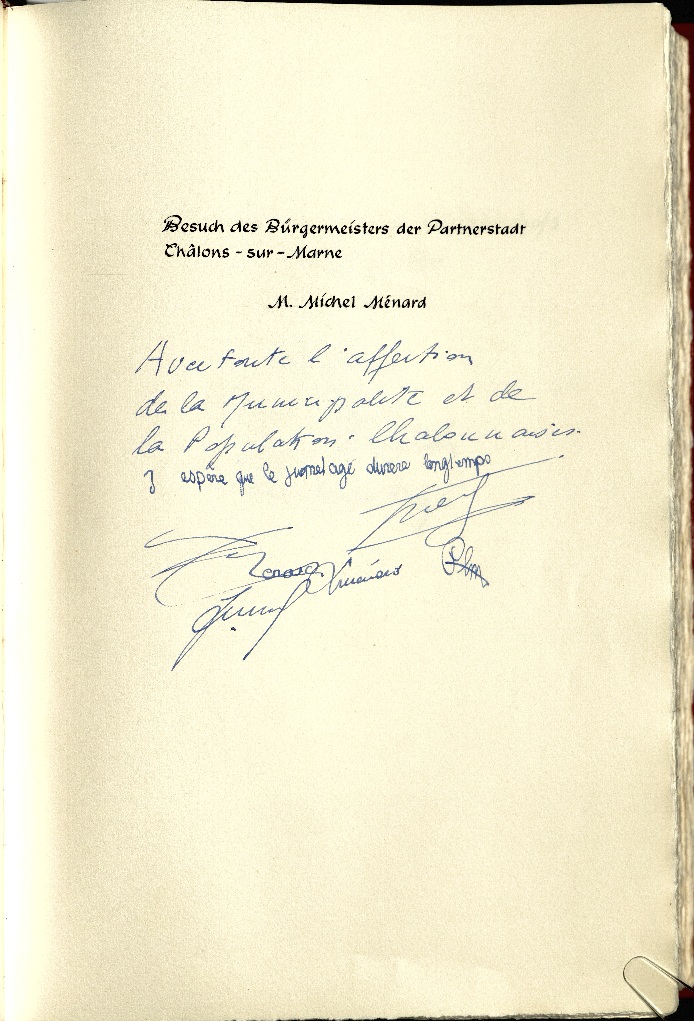 Besuch des Bürgermeisters der Partnerstadt
Châlons - sur - Marne
M. Michel Ménard
Avec toute l'affection
de la Municipalité et de
la Population Chalonnaise.
J espère que le jumelage durera longtemps